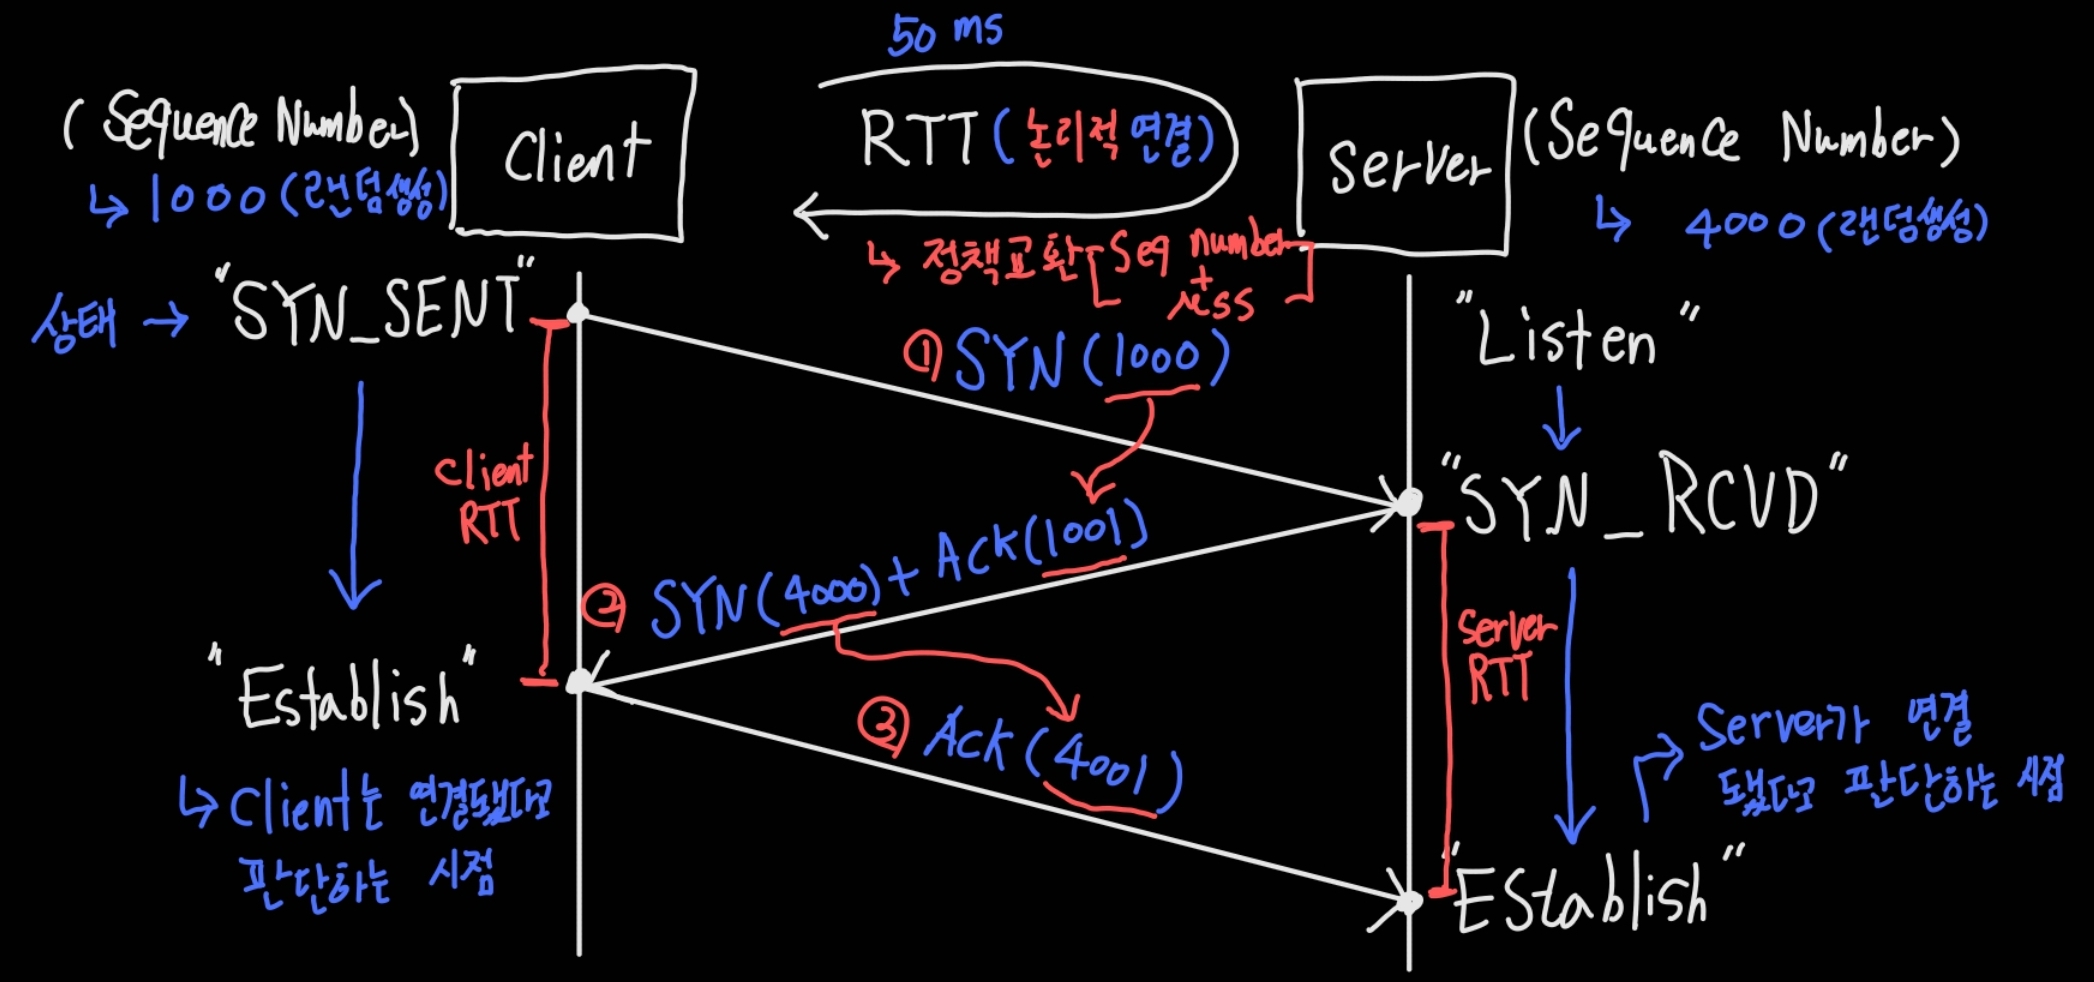 50 ms
(Sequence Number)
↳ 1000 (랜덤생성)
Client
RTT (논리적 연결)
Server
(Sequence Number)
↳ 4000 (랜덤생성)
↳ 정책교환 [Seq Number
+
MSS]
상태 → "SYN_SENT"
"Listen"
① SYN (1000)
Client
RTT
"SYN_RCVD"
② SYN (4000) + ACK (1001)
Server
RTT
"Establish"
③ ACK (4001)
↳ Client는 연결됐다고
판단하는 시점
Server가 연결
됐다고 판단하는 시점
"EStablish"